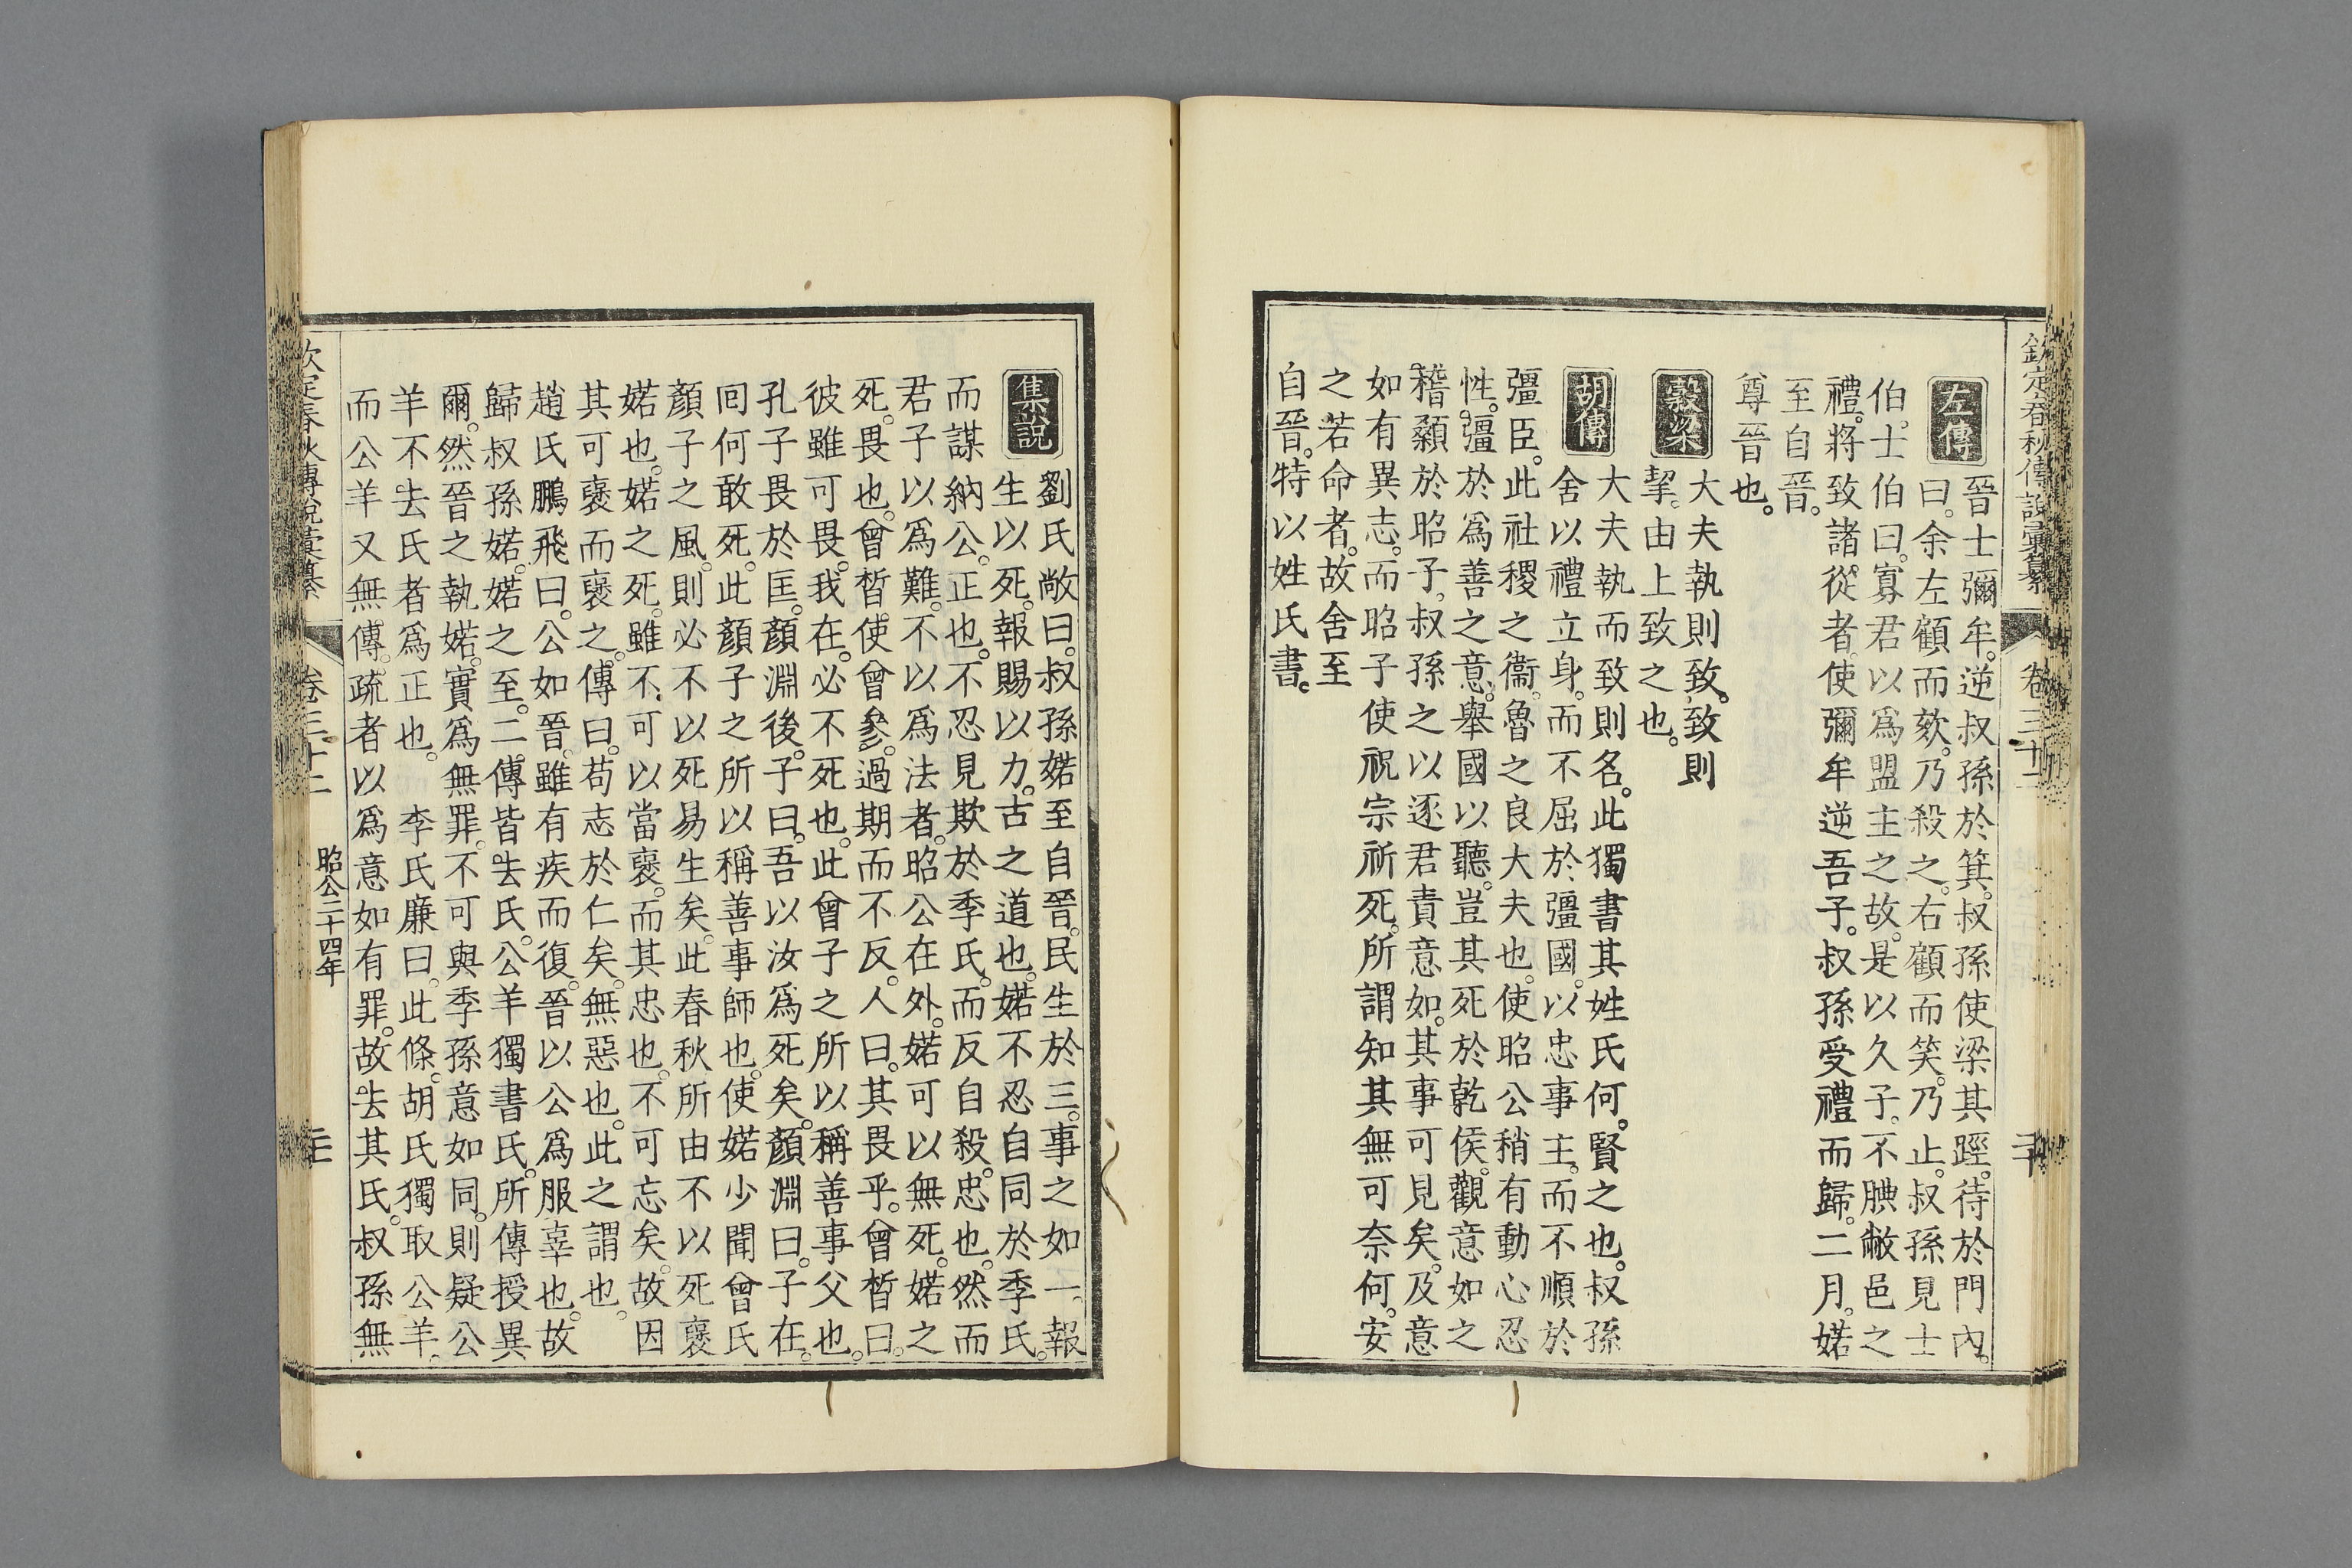 欽定春秋傳說彙纂 卷三十二
左傳
晉士彌牟。逆叔孫於箕。叔孫使梁其踁。待於門內。
曰。余左顧而欬。乃殺之。右顧而笑。乃止。叔孫見士
伯。士伯曰。寡君以爲盟主之故。是以久子。不腆敝邑之
禮。將致諸從者。使彌牟逆吾子。叔孫受禮而歸。二月。婼
至自晉。
尊晉也。
穀梁
大夫執則致。致則
挈。由上致之也。
胡傳
大夫執而致則名。此獨書其姓氏何。賢之也。叔孫
舍以禮立身。而不屈於彊國。以忠事主。而不順於
彊臣。此社稷之衞。魯之良大夫也。使昭公稍有動心忍
性。彊於爲善之意。舉國以聽。豈其死於乾侯。觀意如之
稽顙於昭子。叔孫之以逐君責意如。其事可見矣。及意
如有異志。而昭子使祝宗祈死。所謂知其無可奈何。安
之若命者。故舍至
自晉。特以姓氏書。
集說
劉氏敞曰。叔孫婼至自晉。民生於三。事之如一。報
生以死。報賜以力。古之道也。婼不忍自同於季氏。
而謀納公。正也。不忍見欺於季氏。而反自殺。忠也。然而
君子以爲難。不以爲法者。昭公在外。婼可以無死。婼之
死。畏也。曾晳使曾參。過期而不反。人曰。其畏乎。曾晳曰。
彼雖可畏。我在。必不死也。此曾子之所以稱善事父也。
孔子畏於匡。顏淵後。子曰。吾以汝爲死矣。顏淵曰。子在。
囘何敢死。此顏子之所以稱善事師也。使婼少聞曾氏
顏子之風。則必不以死易生矣。此春秋所由不以死襃
婼也。婼之死。雖不可以當襃。而其忠也。不可忘矣。故因
其可襃而襃之。傳曰。苟志於仁矣。無惡也。此之謂也。
趙氏鵬飛曰。公如晉。雖有疾而復。晉以公爲服辜也。故
歸叔孫婼。婼之至。二傳皆去氏。公羊獨書氏。所傳授異
爾。然晉之執婼。實爲無罪。不可與季孫意如同。則疑公
羊不去氏者爲正也。 李氏廉曰。此條。胡氏獨取公羊。
而公羊又無傳。疏者以爲意如有罪。故去其氏。叔孫無
欽定春秋傳說彙纂 卷三十二 昭公二十四年